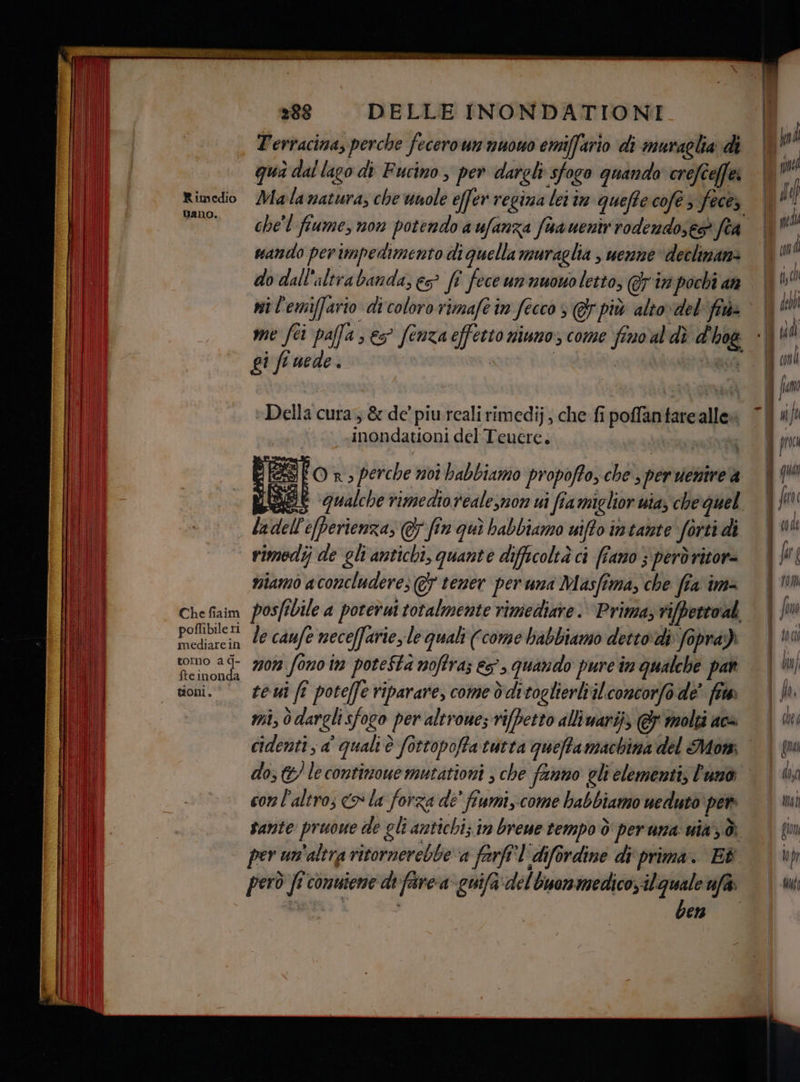 288 DELLE INONDATIONI
Terracina, perche fecero un nuouo emiſſario di muraglia di
quà dal lago di Fucino, per dargli sfogo quando creſceſſe.
Rimedio uano.
Ma la natura, che uuole eſſer regina lei in queſte coſe, fece,
che'l fiume, non potendo a uſanza ſua uenir rodendo, & ſca
uando per impedimento di quella muraglia, uenne declinan-
do dall'altra banda, & ſi fece un nuouo letto, & in pochi an
ni l'emiſſario di coloro rimaſe in ſecco; & più alto del fiu-
me ſei paſſa, & ſenza effetto niuno, come fino al dì d'hog
gi ſi uede.
Della cura, & de' piu reali rimedij, che ſi poſſan fare alle
inondationi del Teuere.
Or, perche noi habbiamo propoſto, che, per uenire a
qualche rimedio reale, non ui ſia miglior uia, che quel
la dell'eſperienza, & fin quì habbiamo uiſto in tante ſorti di
rimedij de gli antichi, quante difficoltà ci ſiano; però ritor-
niamo a concludere; & tener per una Masſima, che ſia im-
Che ſia im poſſibile ri mediare in torno a q- ſte inonda tioni.
posſibile a poterui totalmente rimediare. Prima, riſpetto al
le cauſe neceſſarie, le quali (come habbiamo detto di ſopra)
non ſono in poteſtà noſtra; &, quando pure in qualche par
te ui ſi poteſſe riparare, come ò di toglierli il concorſo de' fiu
mi, ò dargli sfogo per altroue; riſpetto alli uarij, & molti ac-
cidenti, a' quali è ſottopoſta tutta queſta machina del Mon
do, & le continoue mutationi, che fanno gli elementi, l'uno
con l'altro, & la forza de' fiumi, come habbiamo ueduto per
tante pruoue de gli antichi; in breue tempo ò per una uia, ò
per un'altra ritornerebbe a farſi'l diſordine di prima. Et
però ſi conuiene di fare a guiſa del buon medico, il quale uſa
ben